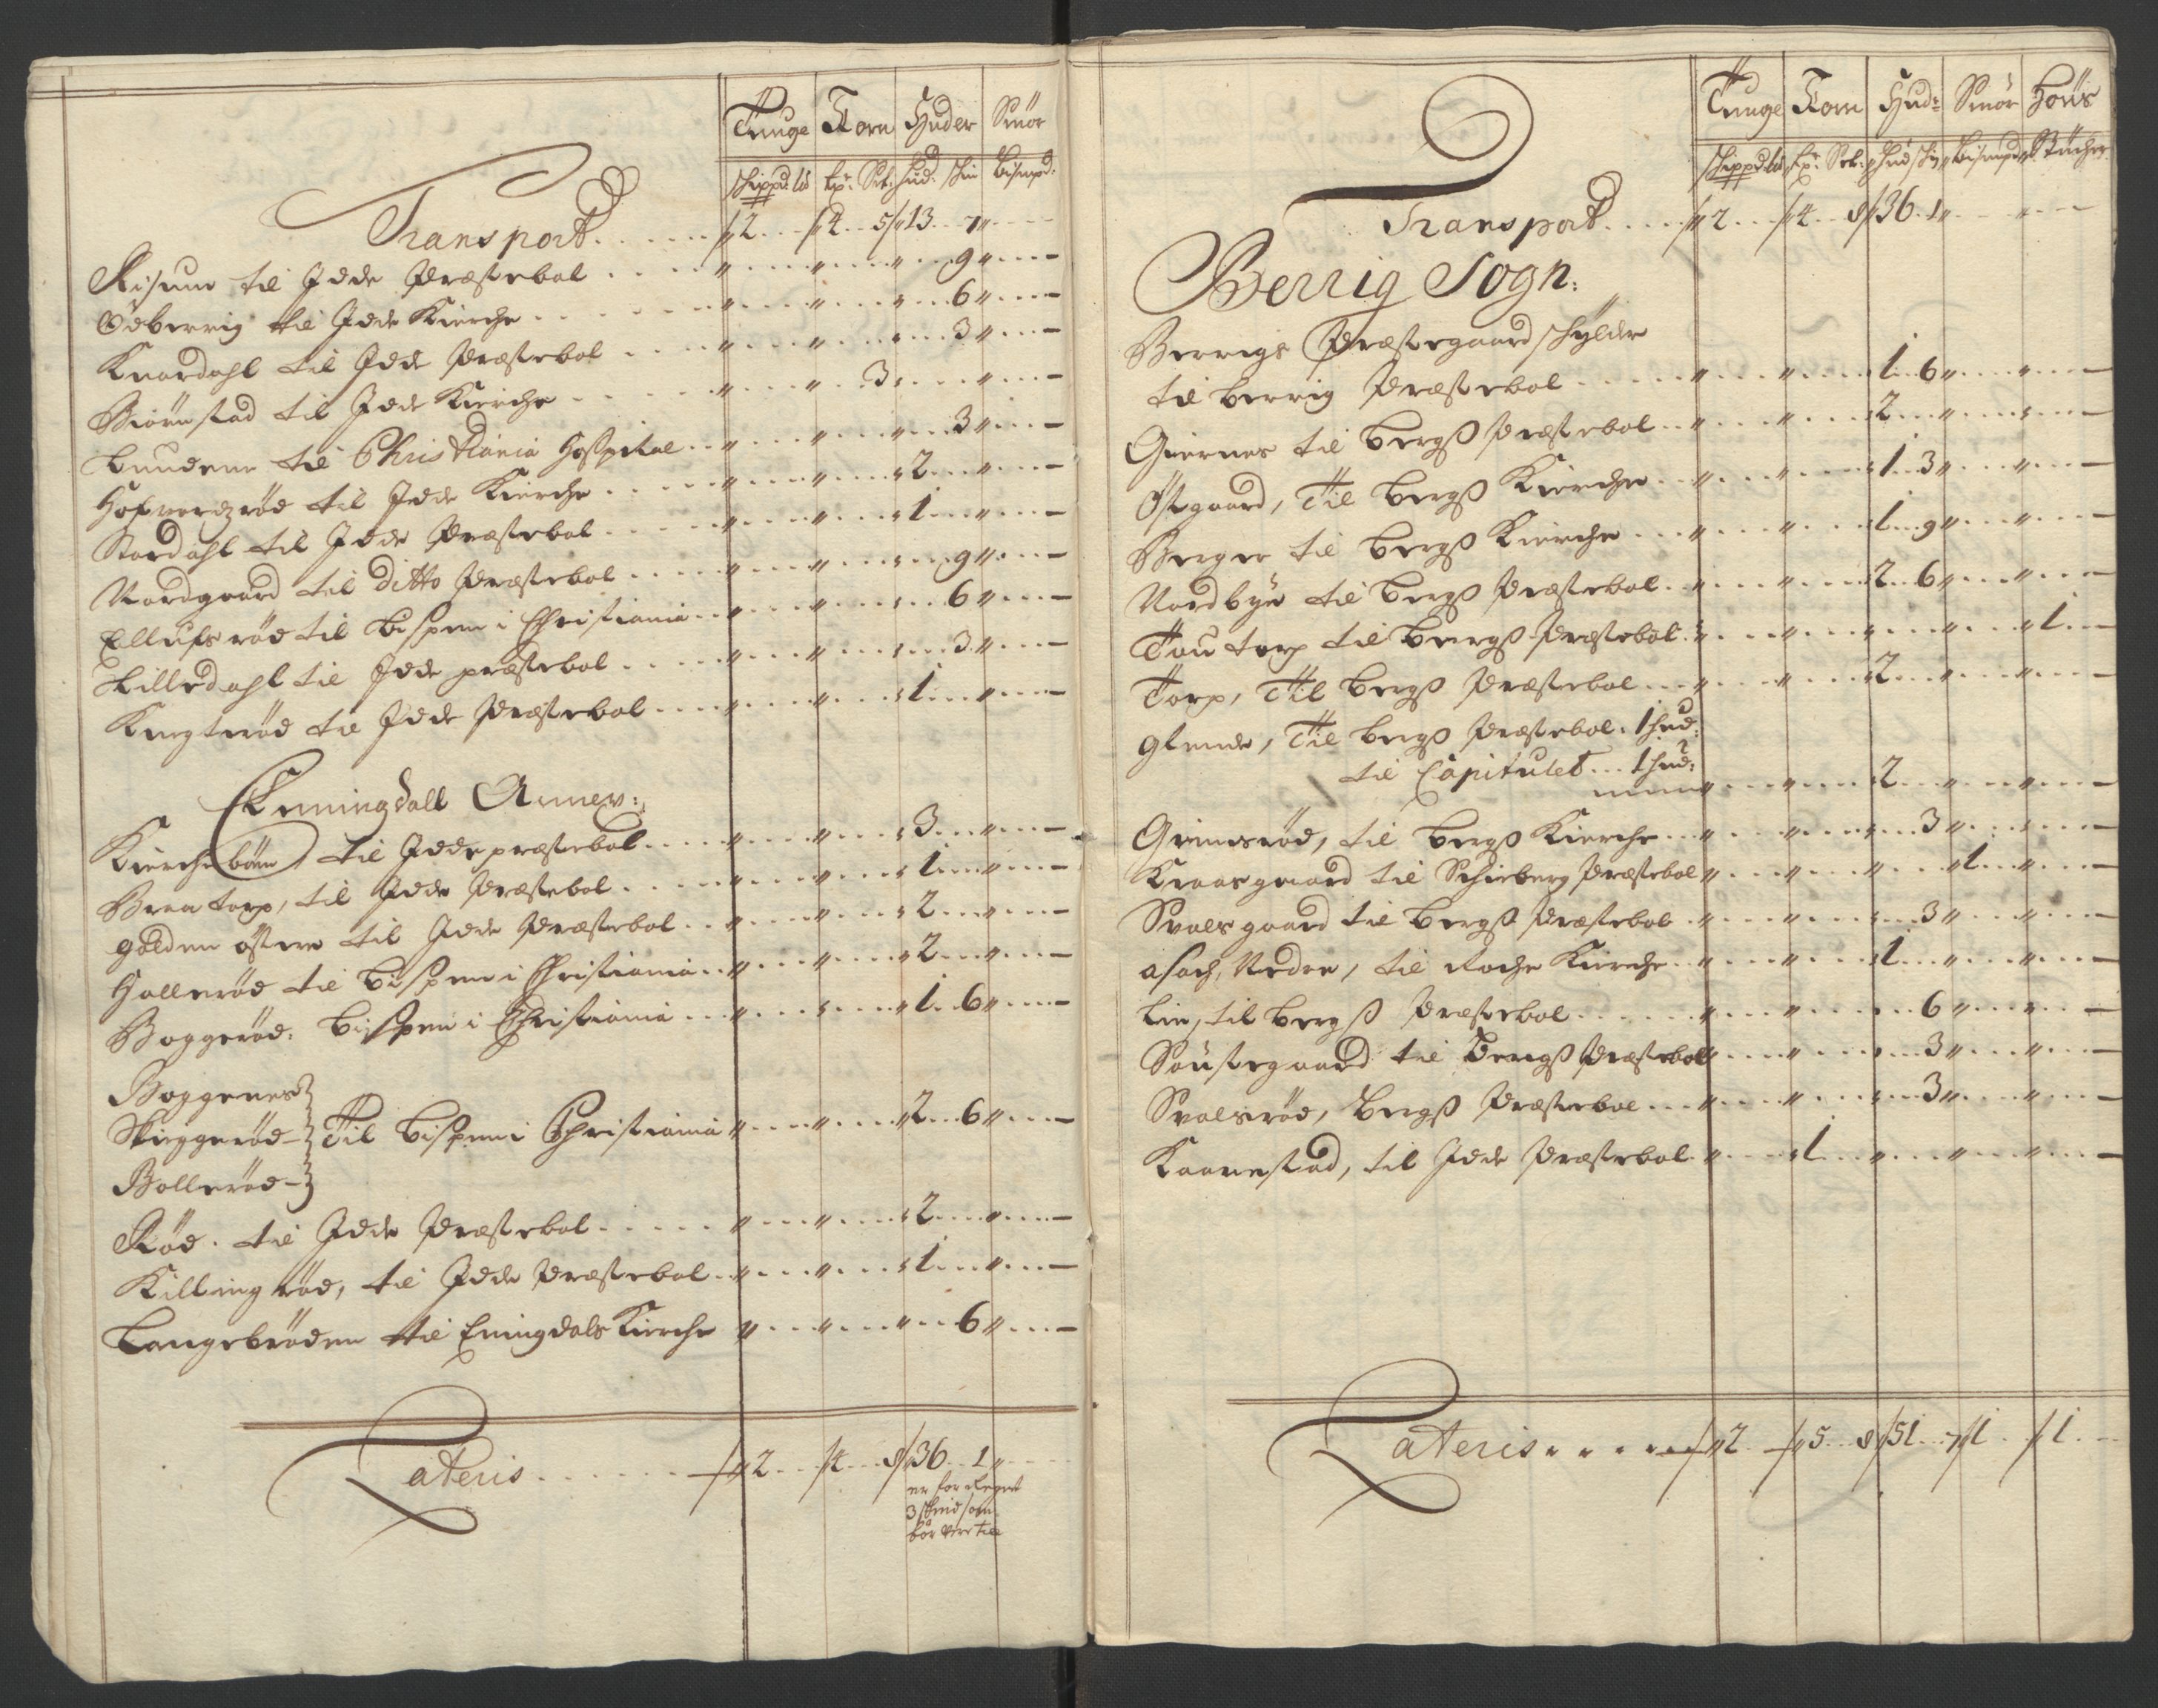 Tunge Korn Huder Smör
schippd: lis tpr: Set: hud: skin Bismpd:
Transport 2 4 5 13 7
Risum til Idde Præstebol 9
Ödberrig til Idde Kierche 6
Knardahl til Idde Præstebol 3
Biörnstad til Idde Kierche 3
Lundene til Christiania Hospital 3
Hofverdzröd til Idde Kierche 2
Stordahl til Idde Præstebol 1
Nordgaard til ditto Præstebol 9
Ellufsröd til Bispen i Christiania 6
Lilledahl til Idde præstebol 3
Kragteröd til Idde Præstebol 1
Enningdall Annex:
Kiercheböen til Idde præstebol 3
Braatorp, til Idde Præstebol 1
Holden östre til Idde Præstebol 2
Holleröd til Bispen i Christiania 2
Boggeröd: Bispen i Christiania 1 6
Boggenes
Skieggeröd Til Bispen i Christiania 2 6
Bolleröd
Röd. til Idde Præstebol 2
Killingröd, til Idde Præstebol 1
Langebröden til Eningdals Kierche 6
Lateris 2 4 8 36 1
er for Regnet
3 skind som
bör vere till
Tunge Korn Hudr Smör Höns
schippd lis tpr: Set: Hud skin Bismpd Stücher
Transport 2 4 8 36 1
Berrig Sogn:
Berrigs Præstegaard skylder
til Berrig Præstebol 1 6
Giernes til Bergß Præstebol 2
Östgaard, Til Bergß Kierche 1 3
Berger til Bergß Kierche 1 9
Nordbÿe til Bergß Præstebol 2 6
Toutorp til Bergß Præstebol 1
Torp, Til Bergß Præstebol 2
Glende, Til Bergß Præstebol. 1 hud:
til Capitulet 1 hud: 2
Grimsröd, til Bergß Kierche 3
Kraasgaard til Schieberg Præstebol 1
Svalesgaard til Bergß Præstebol 3
Asach, Nedre, til Roche Kierche 1
Lie, til Bergß Præstebol 6
Söustegaard til Bergß Præstebol 3
Svalsröd, Bergß Præstebol 3
Kaarestad, til Idde Præstebol 1
Lateris 2 5 8 51 7 1 1